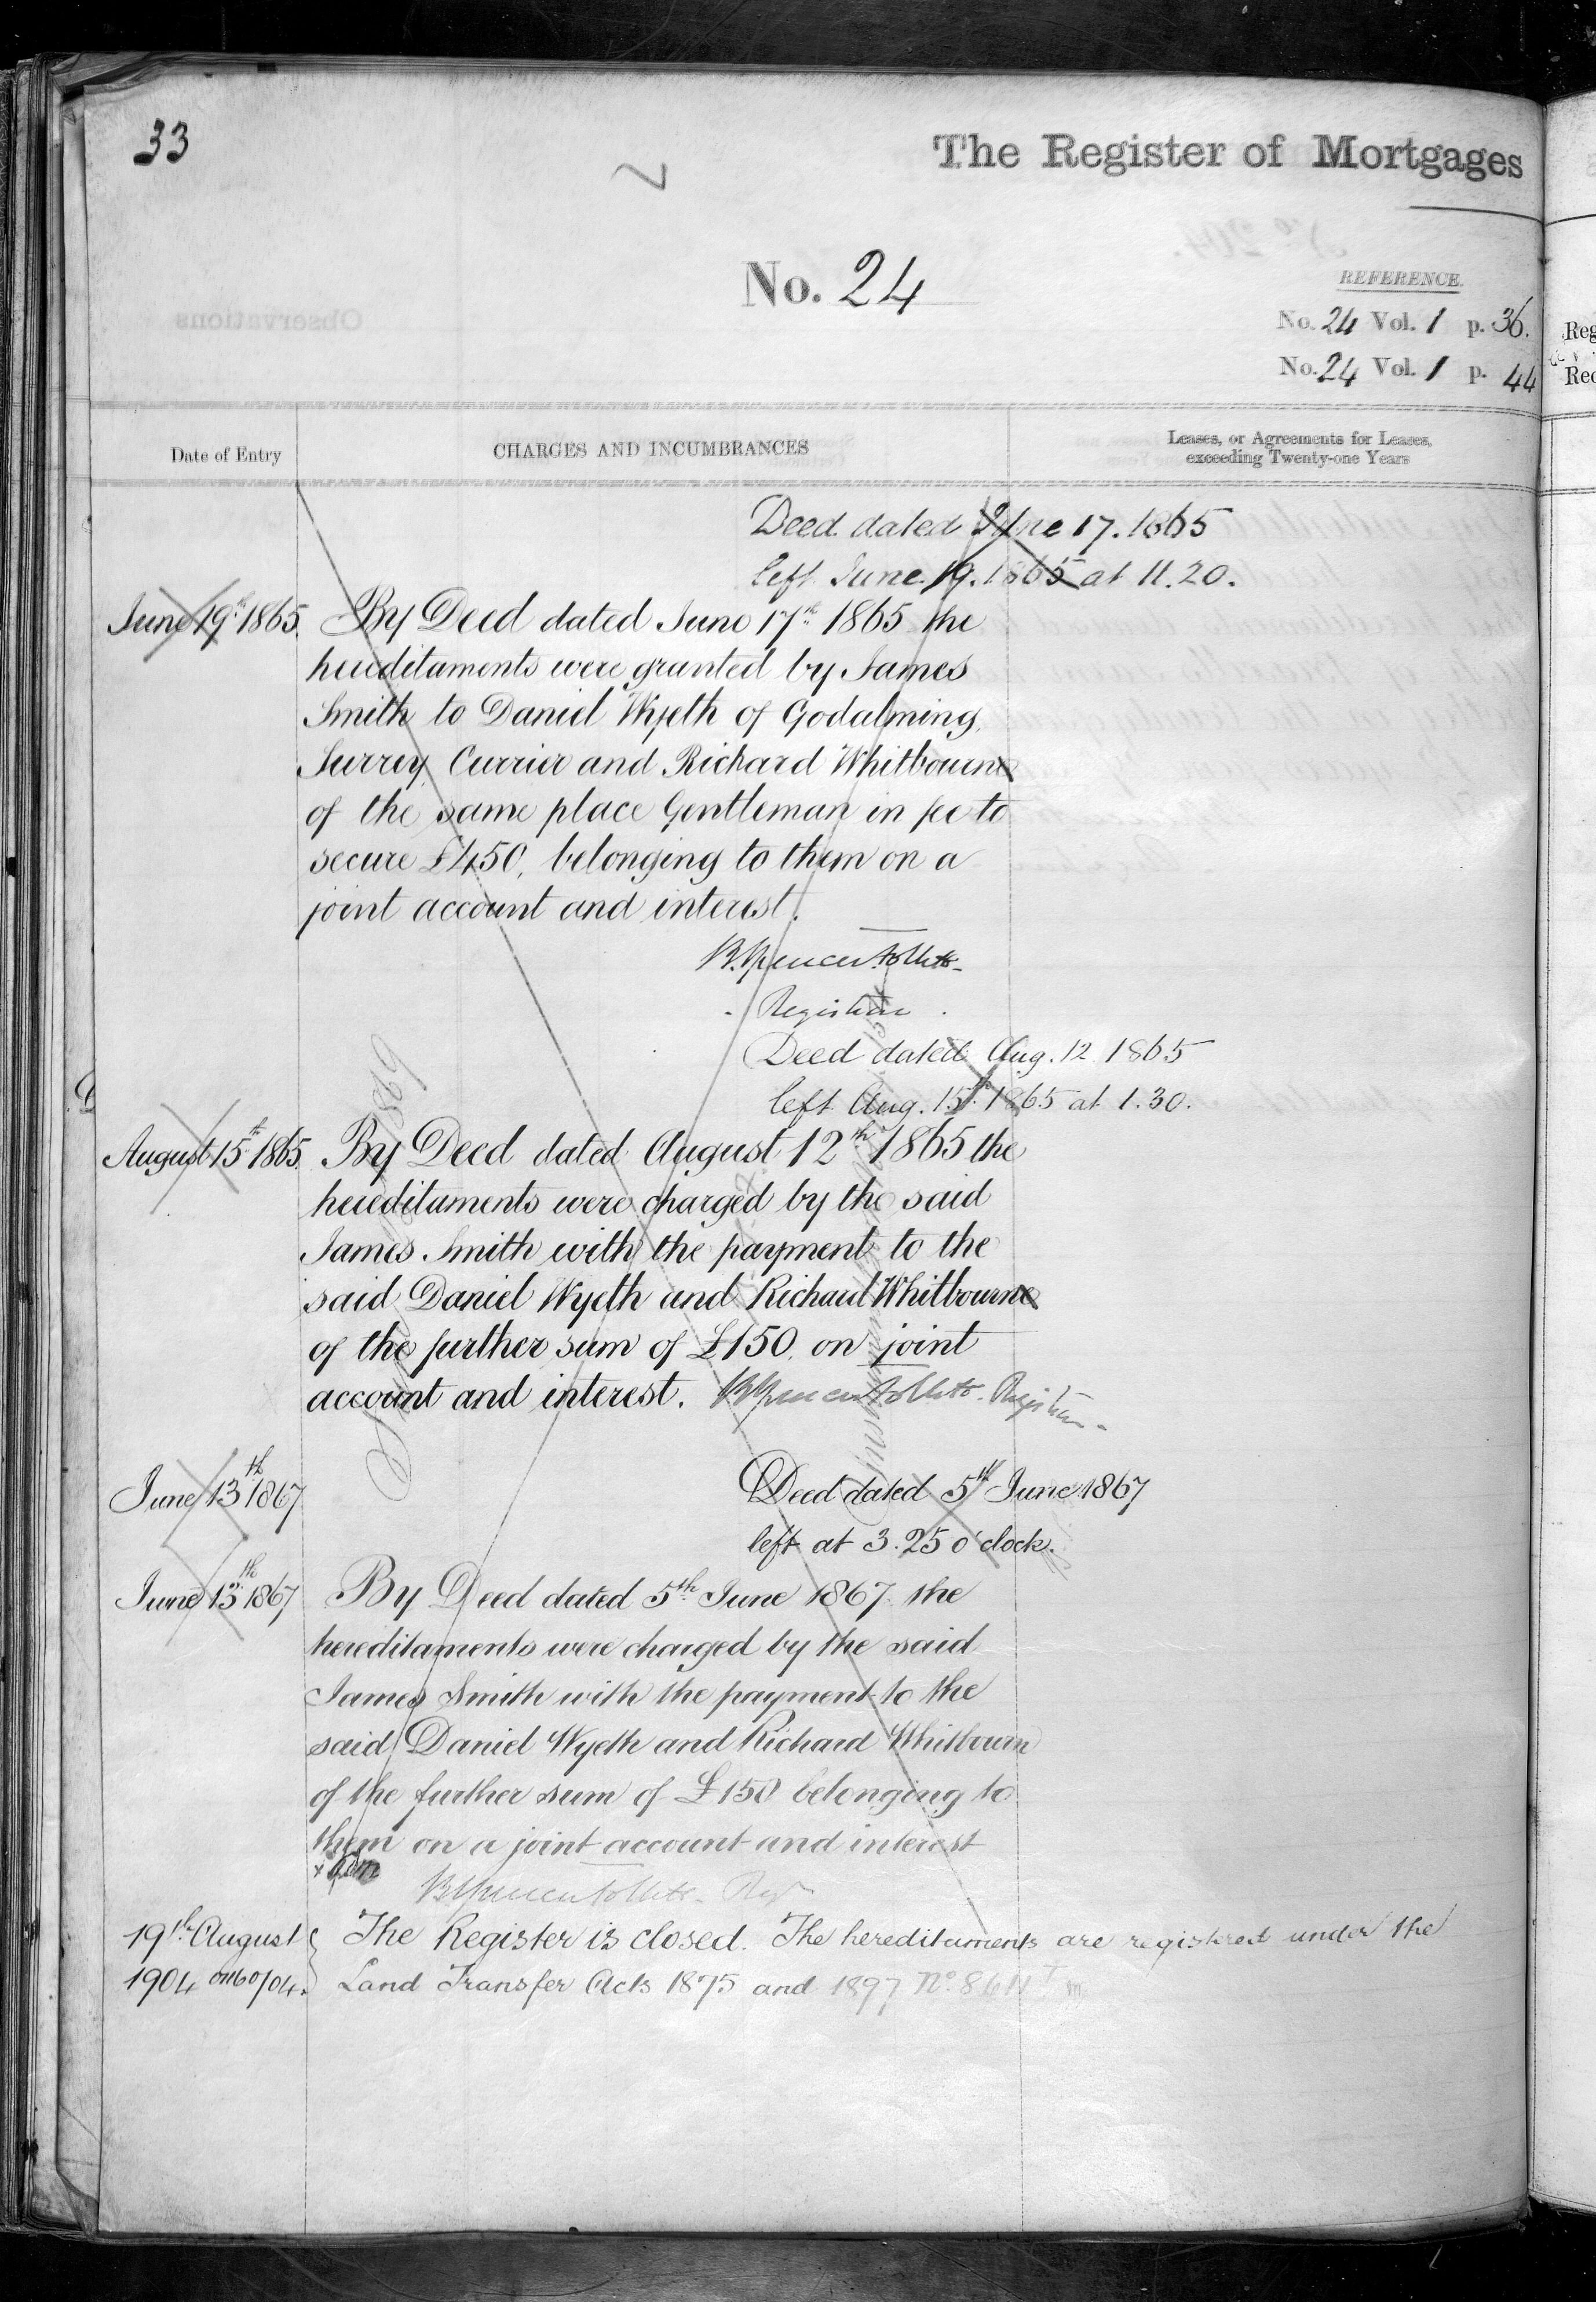 33
The Register of Mortgages
No. 24
REFERENCE.
No. 24 Vol. 1 p. 36.
No. 24 Vol. 1 p. 44
Date of Entry
CHARGES AND INCUMBRANCES
Leases, or Agreements for Leases,
exceeding Twenty-one Years
Deed dated June 17. 1865
left June 19. 1865 at 11.20.
June 19th 1865. By Deed dated June 17th 1865 the
hereditaments were granted by James
Smith to Daniel Wyeth of Godalming,
Surrey, Currier and Richard Whitbourne
of the same place Gentleman in fee to
secure £450, belonging to them on a
joint account and interest.
B. Spencer Follett
Registrar
Deed dated Aug. 12 1865
left Aug. 15th 1865 at 1.30.
August 15th 1865. By Deed dated August 12th 1865 the
hereditaments were charged by the said
James Smith with the payment to the
said Daniel Wyeth and Richard Whitbourne
of the further sum of £150, on joint
account and interest. B Spencer Follett. Registrar
June 13th 1867
Deed dated 5th June 1867
left at 3.25 o'clock.
June 13th 1867 By Deed dated 5th June 1867 the
hereditaments were charged by the said
James Smith with the payment to the
said Daniel Wyeth and Richard Whitbourn
of the further sum of £150 belonging to
them on a joint account and interest
B Spencer Follett Regr
19th August The Register is closed. The hereditaments are registered under the
1904 Land Transfer Acts 1875 and 1897 No.
Reg
Rec
Observations